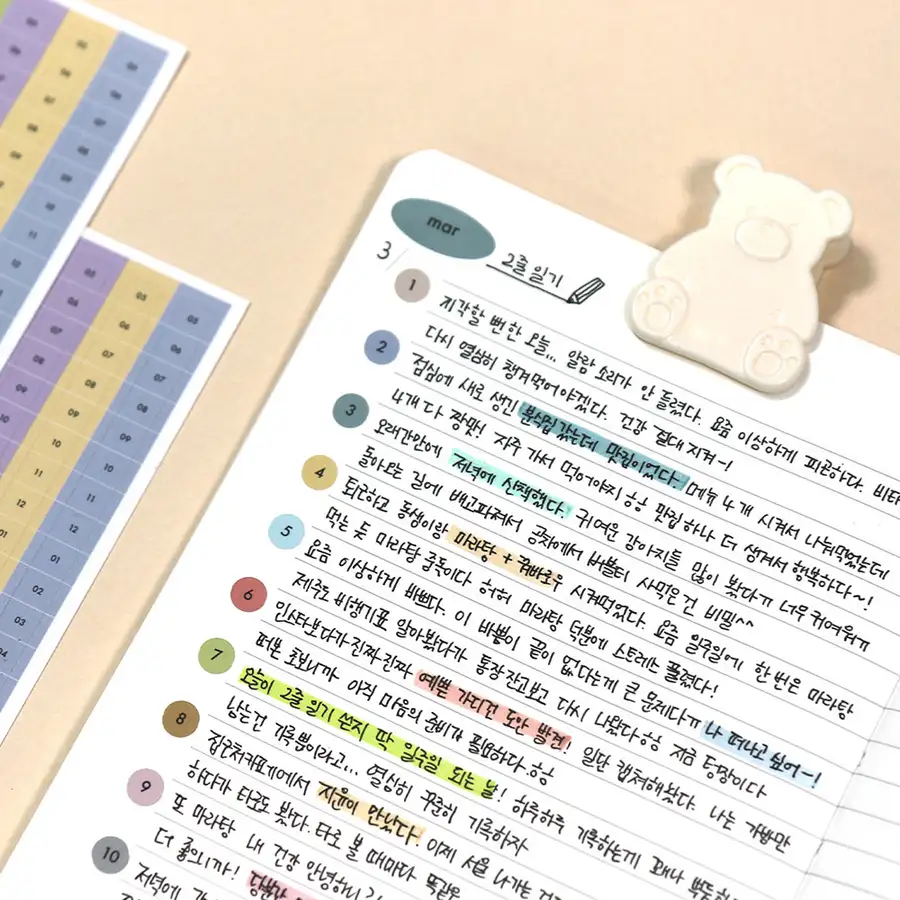 mar
3/
2줄일기
1 지각할 뻔한 오늘... 알람 소리가 안 들렸다. 요즘 이상하게 피곤하다. 비타
다시 열심히 챙겨먹어야겠다. 건강 절대 지켜~!
2 점심에 새로 생긴 분식집 갔는데 맛집이었다. 메뉴 4개 시켜서 나눠먹었는데
4개 다 짱맛! 자주 가서 먹어야지 ㅎㅎ 맛집 하나 더 생겨서 행복하다~!
3 오래간만에 저녁에 산책했다. 귀여운 강아지들 많이 봤다ㄲ 너무 귀여워ㄲ
돌아오는 길에 배고파져서 공차에서 버블티 사먹은건 비밀^^
4 퇴근하고 동생이랑 마라탕 + 꿔바로우 시켜먹었다. 요즘 일주일에 한번은 마라탕
먹는 듯 마라탕 중독이다 허허 마라탕 덕분에 스트레스 풀렸다!
5 요즘 이상하게 바쁘다. 이 바쁨이 끝이 없다는게 큰 문제다ㄲ 나 떠나고 싶어~!
제주도 비행기표 알아봤다가 통장잔고보고 다시 나왔다ㅎㅎ 지금
6 인스타보다가 진짜진짜 예쁜 가디건 도안 발견! 일단 캡쳐해놨다. 나는 가방만
떠본 초보니까 아직 마음의 준비가 필요하다.ㅎㅎ
7 오늘이 2줄 일기 쓴지 딱 일주일 되는 날! 하루하루 기록하는게 꽤나 뿌듯하
남는건 기록뿐이라고... 열심히 꾸준히 기록하자
8 집근처카페에서 지윤이 만났다. 이제 서울 나가는
하다가 타로도 봤다. 타로 볼 때마다 똑같은
9 또 마라탕 내 건강 안녕하니?
더 좋으니까! 당분간
10 저녁에